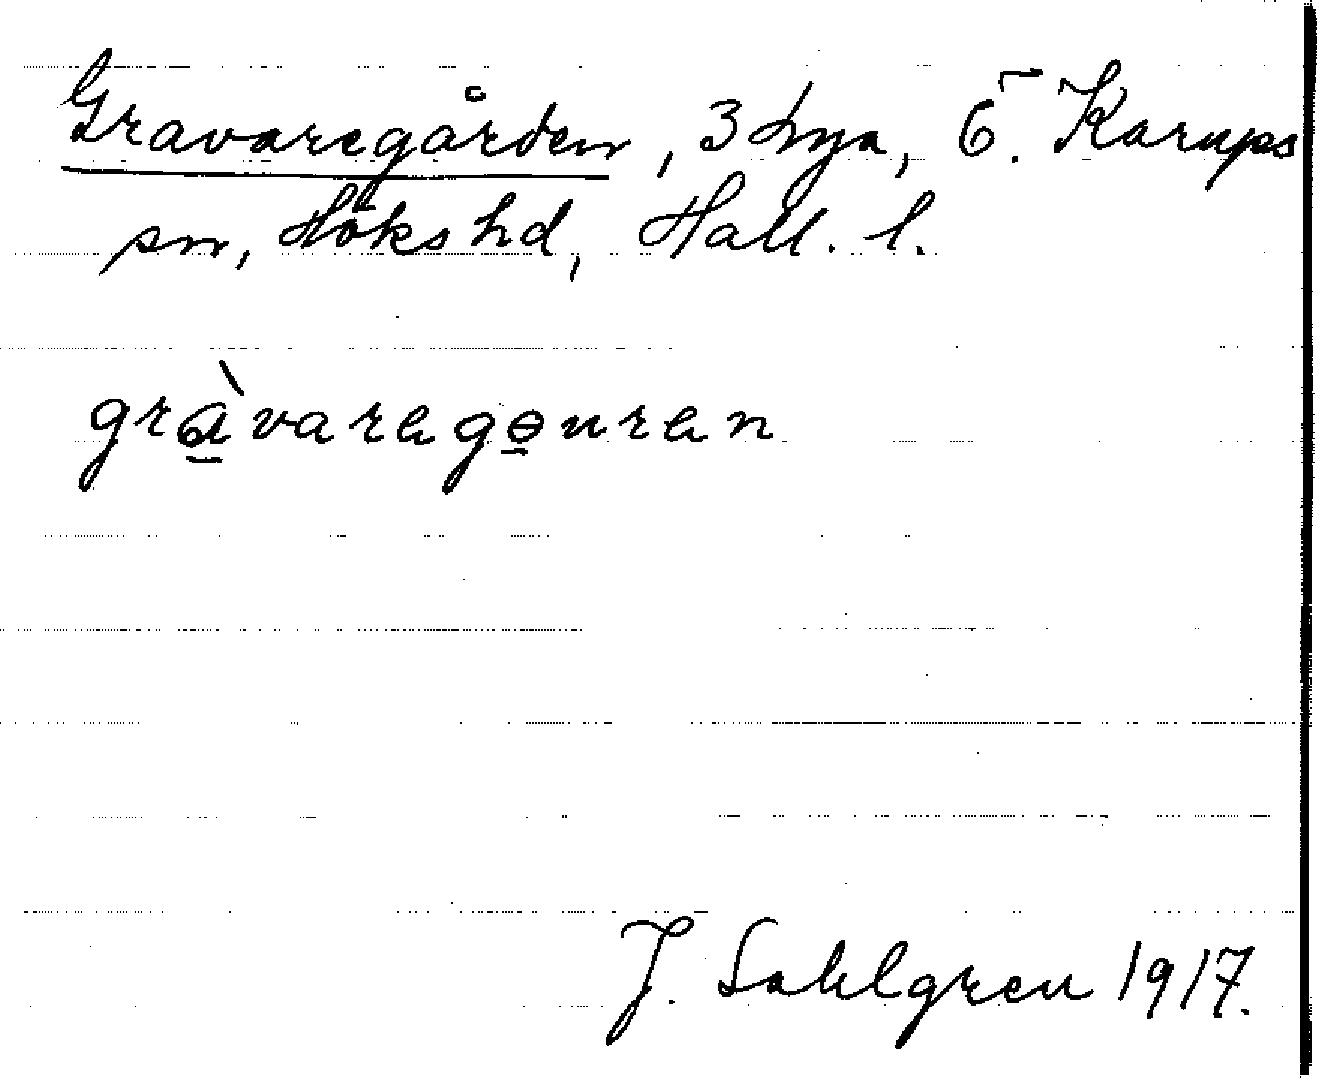 Gravaregården, 3 Lya, Ö. Karups
sn, Höks hd, Hall. l.
gràvaragɵuran
J. Sahlgren 1917.